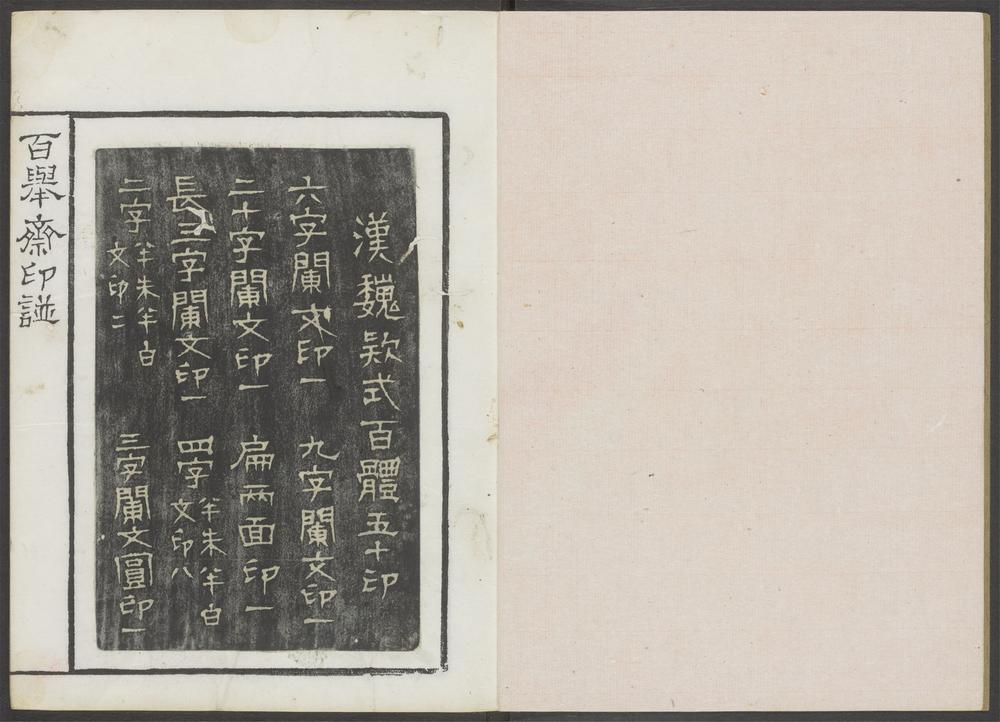 漢魏欵式百體五十印
六字闌文印一 九字闌文印一
二十字闌文印一 扁兩面印一
長三字闌文印一 四字半朱半白文印八
二字半朱半白文印二 三字闌文圓印一
百舉齋印譜